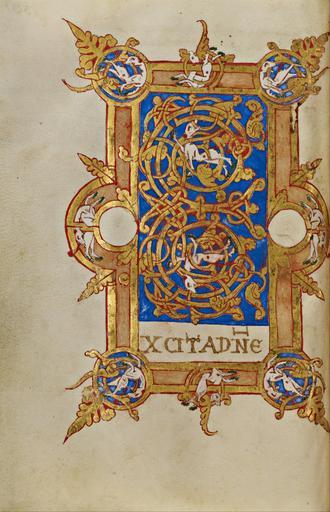 XCITADN̄E